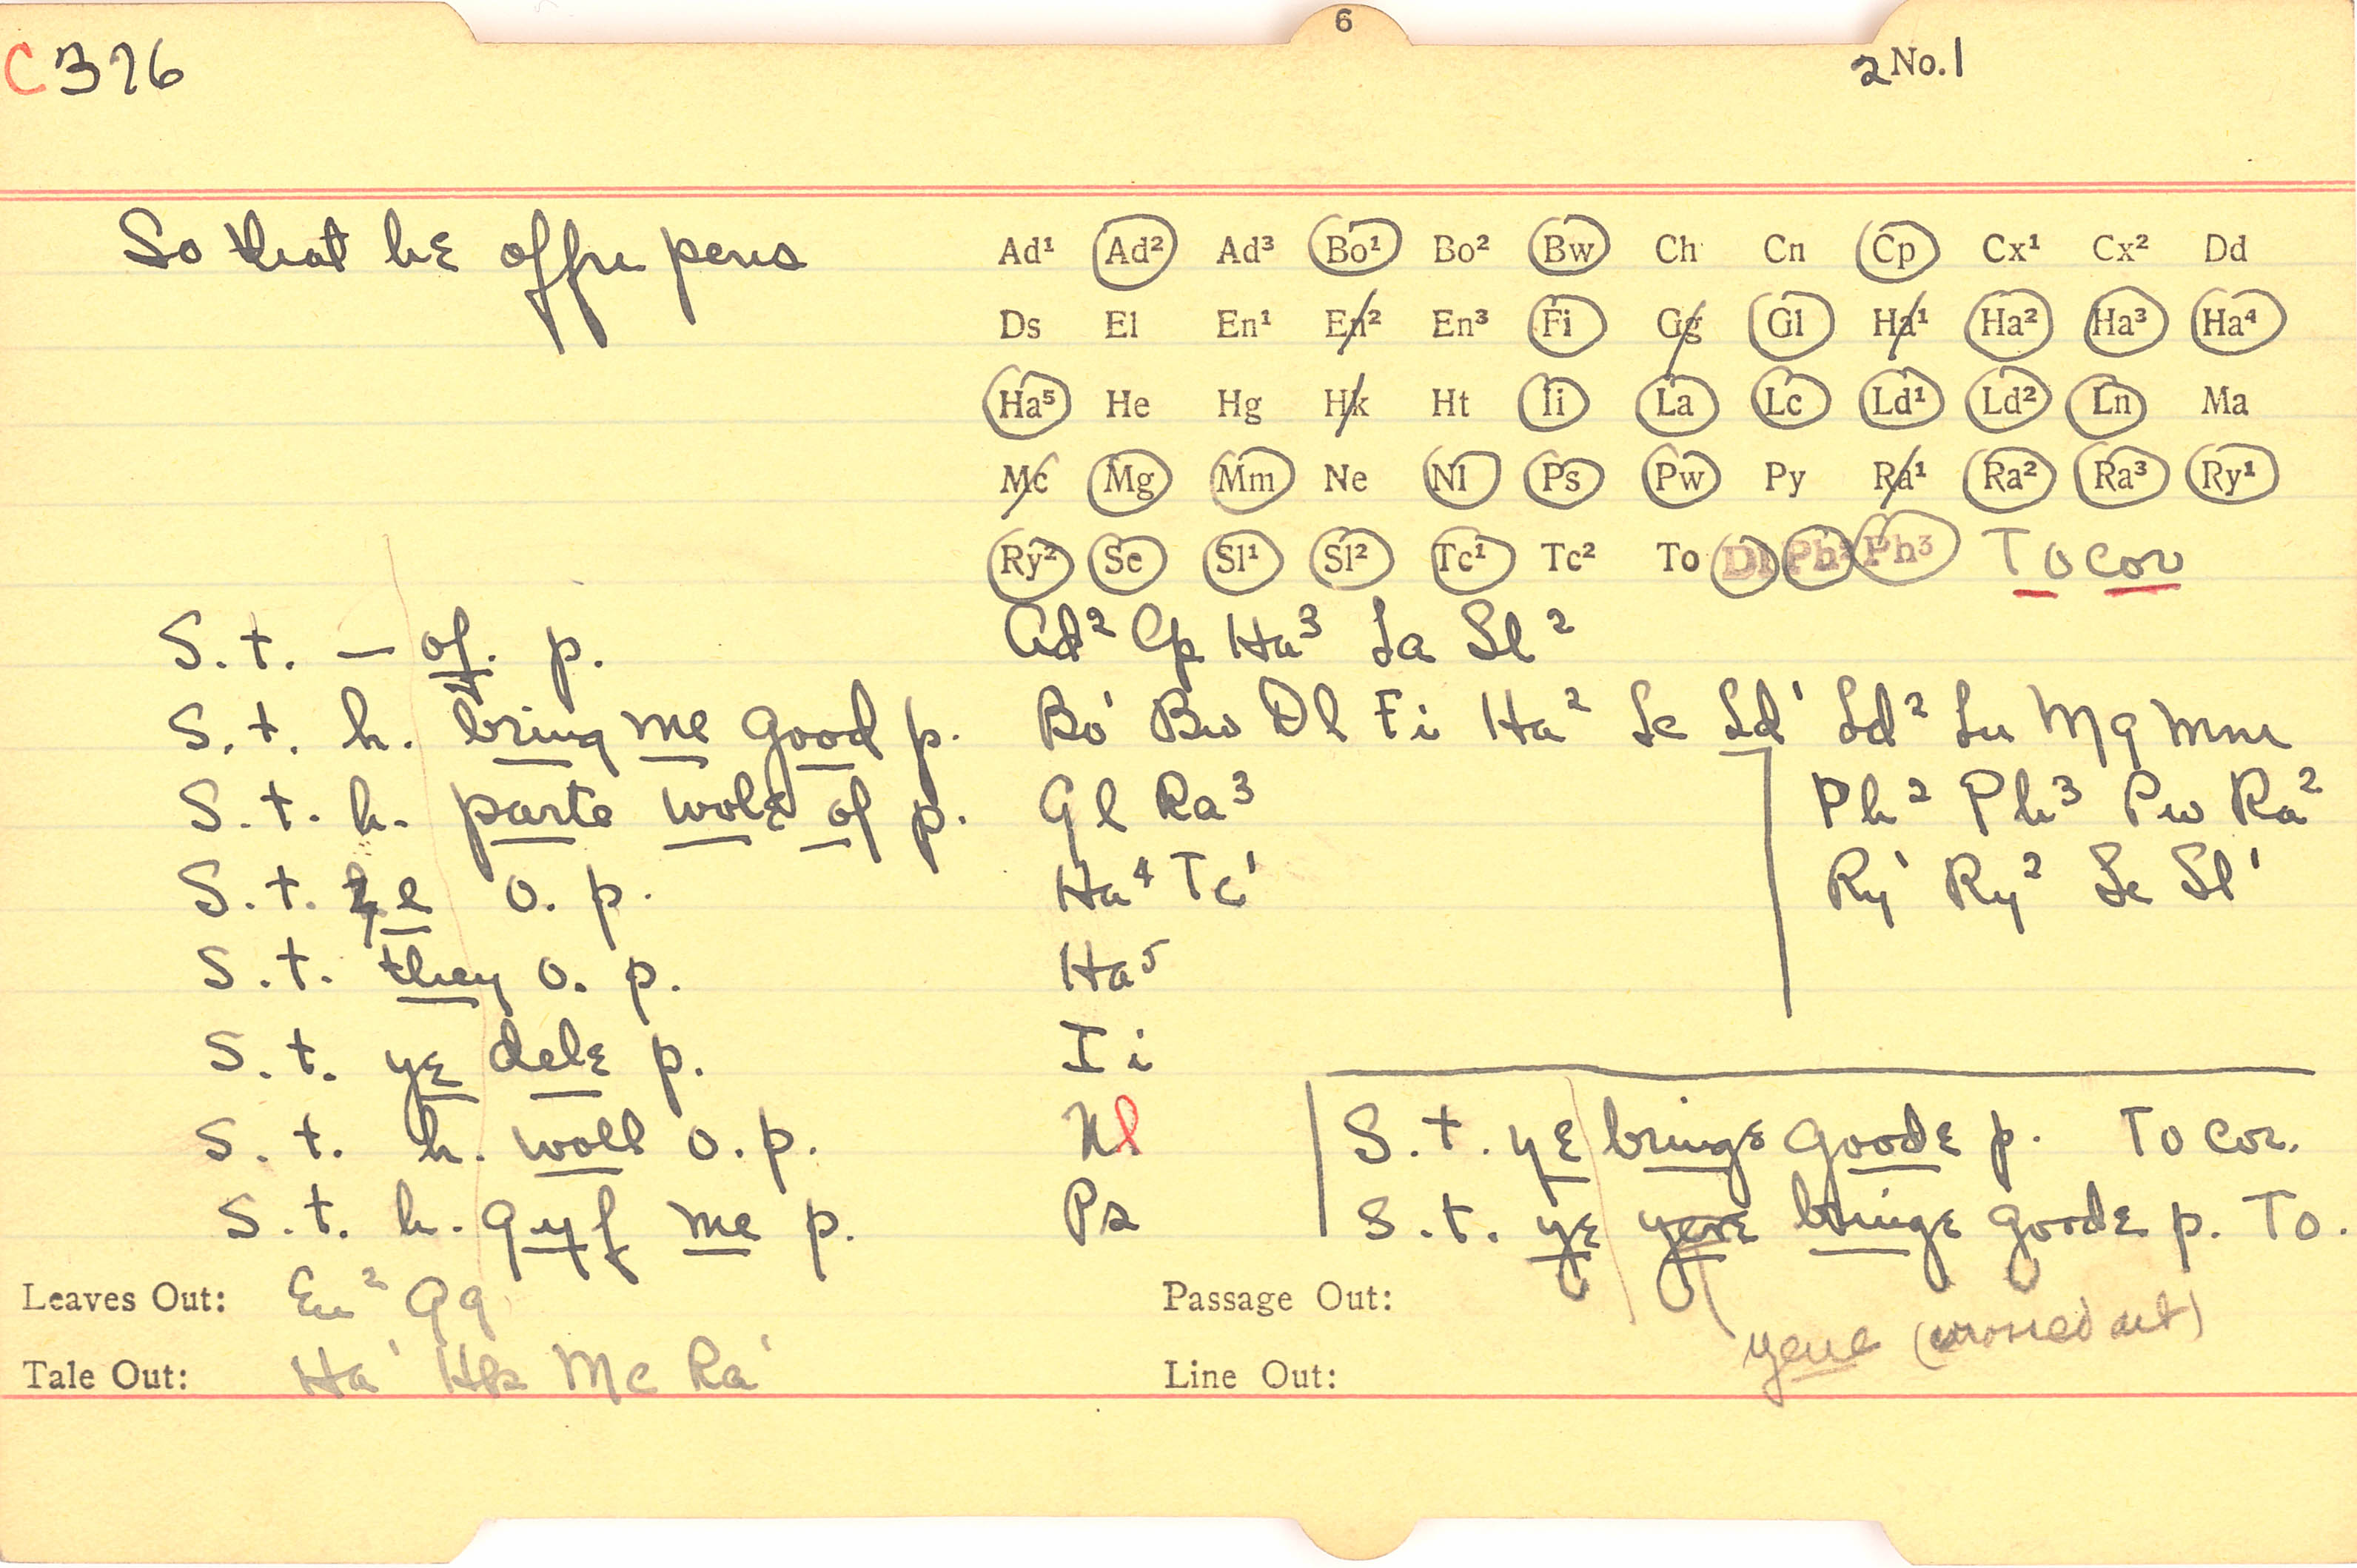 6
C 376
2 No. 1
So that he offre pens
Ad¹ Ad² Ad³ Bo¹ Bo² Bw Ch Cn Cp Cx¹ Cx² Dd
Ds El En¹ En² En³ Fi Gg Gl Ha¹ Ha² Ha³ Ha⁴
Ha⁵ He Hg Hk Ht Ii La Lc Ld¹ Ld² Ln Ma
Mc Mg Mm Ne Nl Ps Pw Py Ra¹ Ra² Ra³ Ry¹
Ry² Se Sl¹ Sl² Tc¹ Tc² To Dl Ph² Ph³ To cor
S. t. – of. p. Ad² Cp Ha³ La Sl²
S. t. h. bring me good p. Bo¹ Bw Dl Fi Ha² Lc Ld¹ Ld² Ln Mg Mm
S. t. h. parte wold of p. Gl Ra³ Ph² Ph³ Pw Ra²
S. t. o. p. Ha⁴ Tc¹ Ry¹ Ry² Se Sl¹
S. t. they o. p. Ha⁵
S. t. ye dele p. Ii
S. t. h. woll o. p. Nl S. t. ye bringe goode p. To cor.
S. t. h. gyf me p. Ps S. t. ye yeve bringe goode p. To.
Leaves Out: En² Gg Passage Out:
yeue (crossed out)
Tale Out: Ha¹ Hk Mc Ra¹ Line Out: